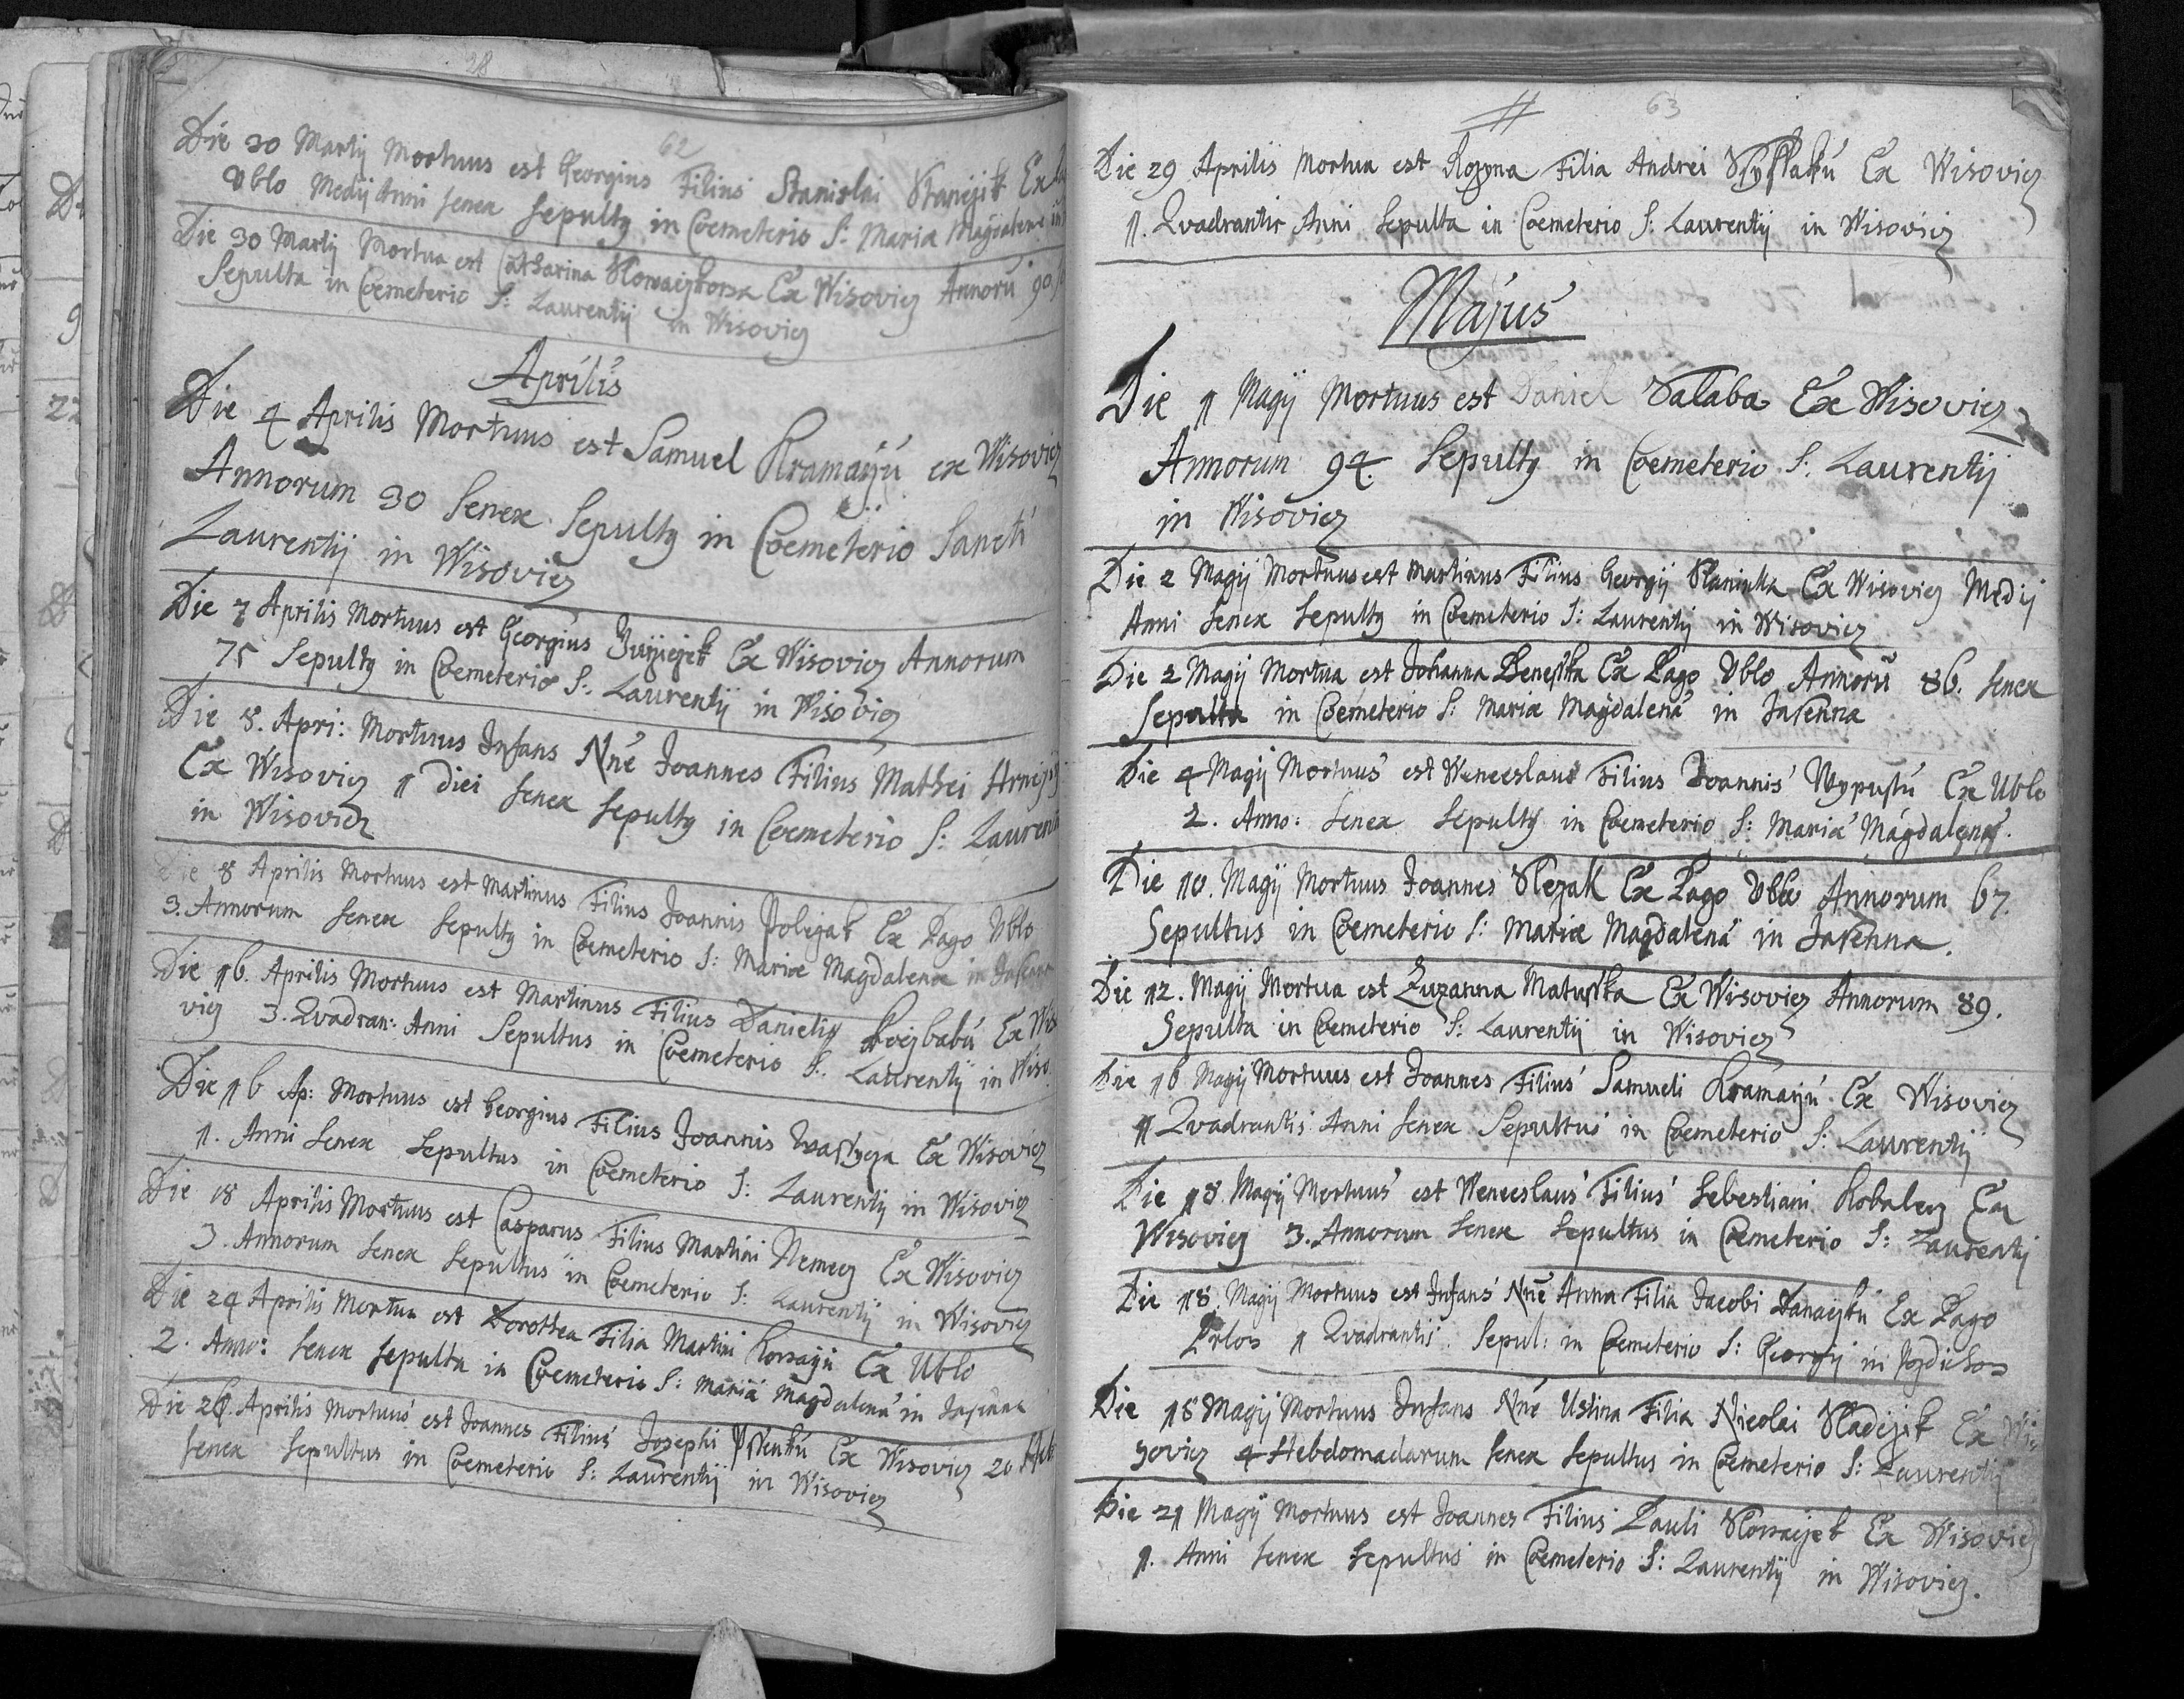 62
Die 30 Martij Mortuus est Georgius Filius Stanislai Stanějek Ex
Vblo Medij Anni senex sepultq in Coemeterio S: Maria Magdalene in
Die 30 Martij Mortua est Catharina Ex Wisovicz Annorū 90
Sepulta in Coemeterio S: Laurentij in Wisovicz
Aprilis
Die 4 Aprilis Mortuus est Samuel Kramarzú ex Wisovicz
Annorum 30 Senex Sepultq in Coemeterio Sancti
Laurentij in Wisovicz
Die 7 Aprilis Mortuus est Georgius Ex Wisovicz Annorum
75 Sepultq in Coemeterio S: Laurentij in Wisovicz
Die 8. Apri: Mortuus Infans Nn̄e Joannes Filius Mathei
Ex Wisovicz 1 diei senex sepultq in Coemeterio S: Laurentij
in Wisovicz
Die 8 Aprilis Mortuus est Martinus Filius Joannis Ex Pago Vblo
3. Annorum senex sepultq in Coemeterio S: Mariæ Magdalena in
Die 16. Aprilis Mortuus est Martinus Filius Danielis Ex Wiso
vicz 3. Qvadran: Anni Sepultus in Coemeterio S: Laurentij in Wiso
Die 16 Ap: Mortuus est Georgius Filius Joannis Ex Wisovicz
1. Anni senex sepultus in Coemeterio S: Laurentij in Wisovicz
Die 18 Aprilis Mortuus est Casparus Filius Martini Nemecz Ex Wisovicz
3. Annorum senex sepultus in Coemeterio S: Laurentij in Wisovicz
Die 24 Aprilis Mortua est Dorothea Filia Martini Ex Ublo
2. Anno: senex sepulta in Coemeterio S: Mariā Magdalenā in Jasenna
Die 26. Aprilis Mortuus est Joannes Filius Josephi Ex Wisovicz 20 Heb
senex sepultus in Coemeterio S: Laurentij in Wisovicz
63
Die 29 Aprilis Mortua est Rozyna Filia Andrei Ex Wisovicz
1. Qvadrantis Anni sepulta in Coemeterio S: Laurentij in Wisovicz
Majus
Die 1 Magij Mortuus est Daniel Salaba Ex Wisovicz
Annorum 94. Sepultq in Coemeterio S: Laurentij
in Wisovicz
Die 2 Magij Mortuus est Martinus Filius Georgij Ex Wisovicz Medij
Anni senex sepultq in Coemeterio S: Laurentij in Wisovicz
Die 2 Magij Mortua est Johanna Benesska Ex Pago Vblo Annorū 86. senex
Sepulta in Coemeterio S: Mariæ Magdalenā in Jasenna
Die 4 Magij Mortuus est Wenceslaus Filius Joannis Ex Ublo
2. Anno: senex sepultq in Coemeterio S: Mariā Magdalenā.
Die 10. Magij Mortuus Joannes Slezak Ex Pago Vblo Annorum 67.
Sepultus in Coemeterio S: Mariæ Magdalenā in Jasenna.
Die 12. Magij Mortua est Zuzanna Matusska Ex Wisovicz Annorum 89.
Sepulta in Coemeterio S: Laurentij in Wisovicz
Die 16 Magij Mortuus est Joannes Filius Samueli Kramarzú Ex Wisovicz
1 Qvadrantis Anni senex Sepultus in Coemeterio S: Laurentij
Die 18. Magij Mortuus est Wenceslaus Filius Sebestiani Kobalecz Ex
Wisovicz 3. Annorum senex sepultus in Coemeterio S: Laurentij
Die 18. Magij Mortuus est Infans Nn̄e Anna Filia Jacobi Ex Pago
1 Qvadrantis Sepul: in Coemeterio S: Georgij in
Die 18 Magij Mortuus Infans Nn̄e Ustina Filia Nicolai Sladeczek Ex Wi=
sovicz 4 Hebdomadarum senex sepultus in Coemeterio S: Laurentij
Die 21 Magij Mortuus est Joannes Filius Pauli Ex Wisovicz
1. Anni senex sepultus in Coemeterio S: Laurentij in Wisovicz.